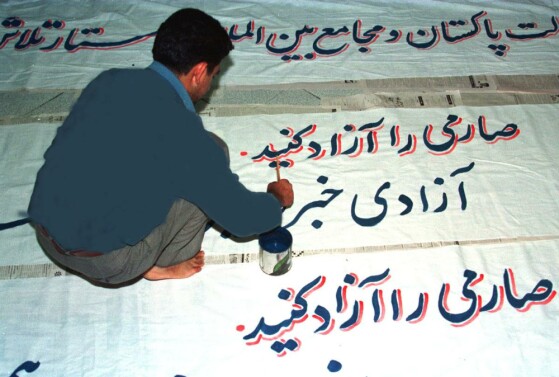 لت پاکستان و مجامع بین المل ستار تلاش
صارمی را آزاد کنید.
آزادی خبر
صارمی را آزاد کنید.